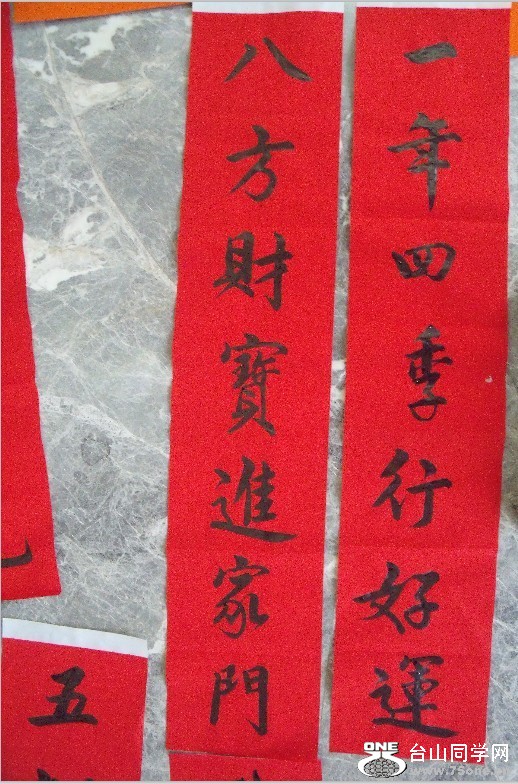 一年四季行好運
八方財寶進家門
五
ONE
台山同学网